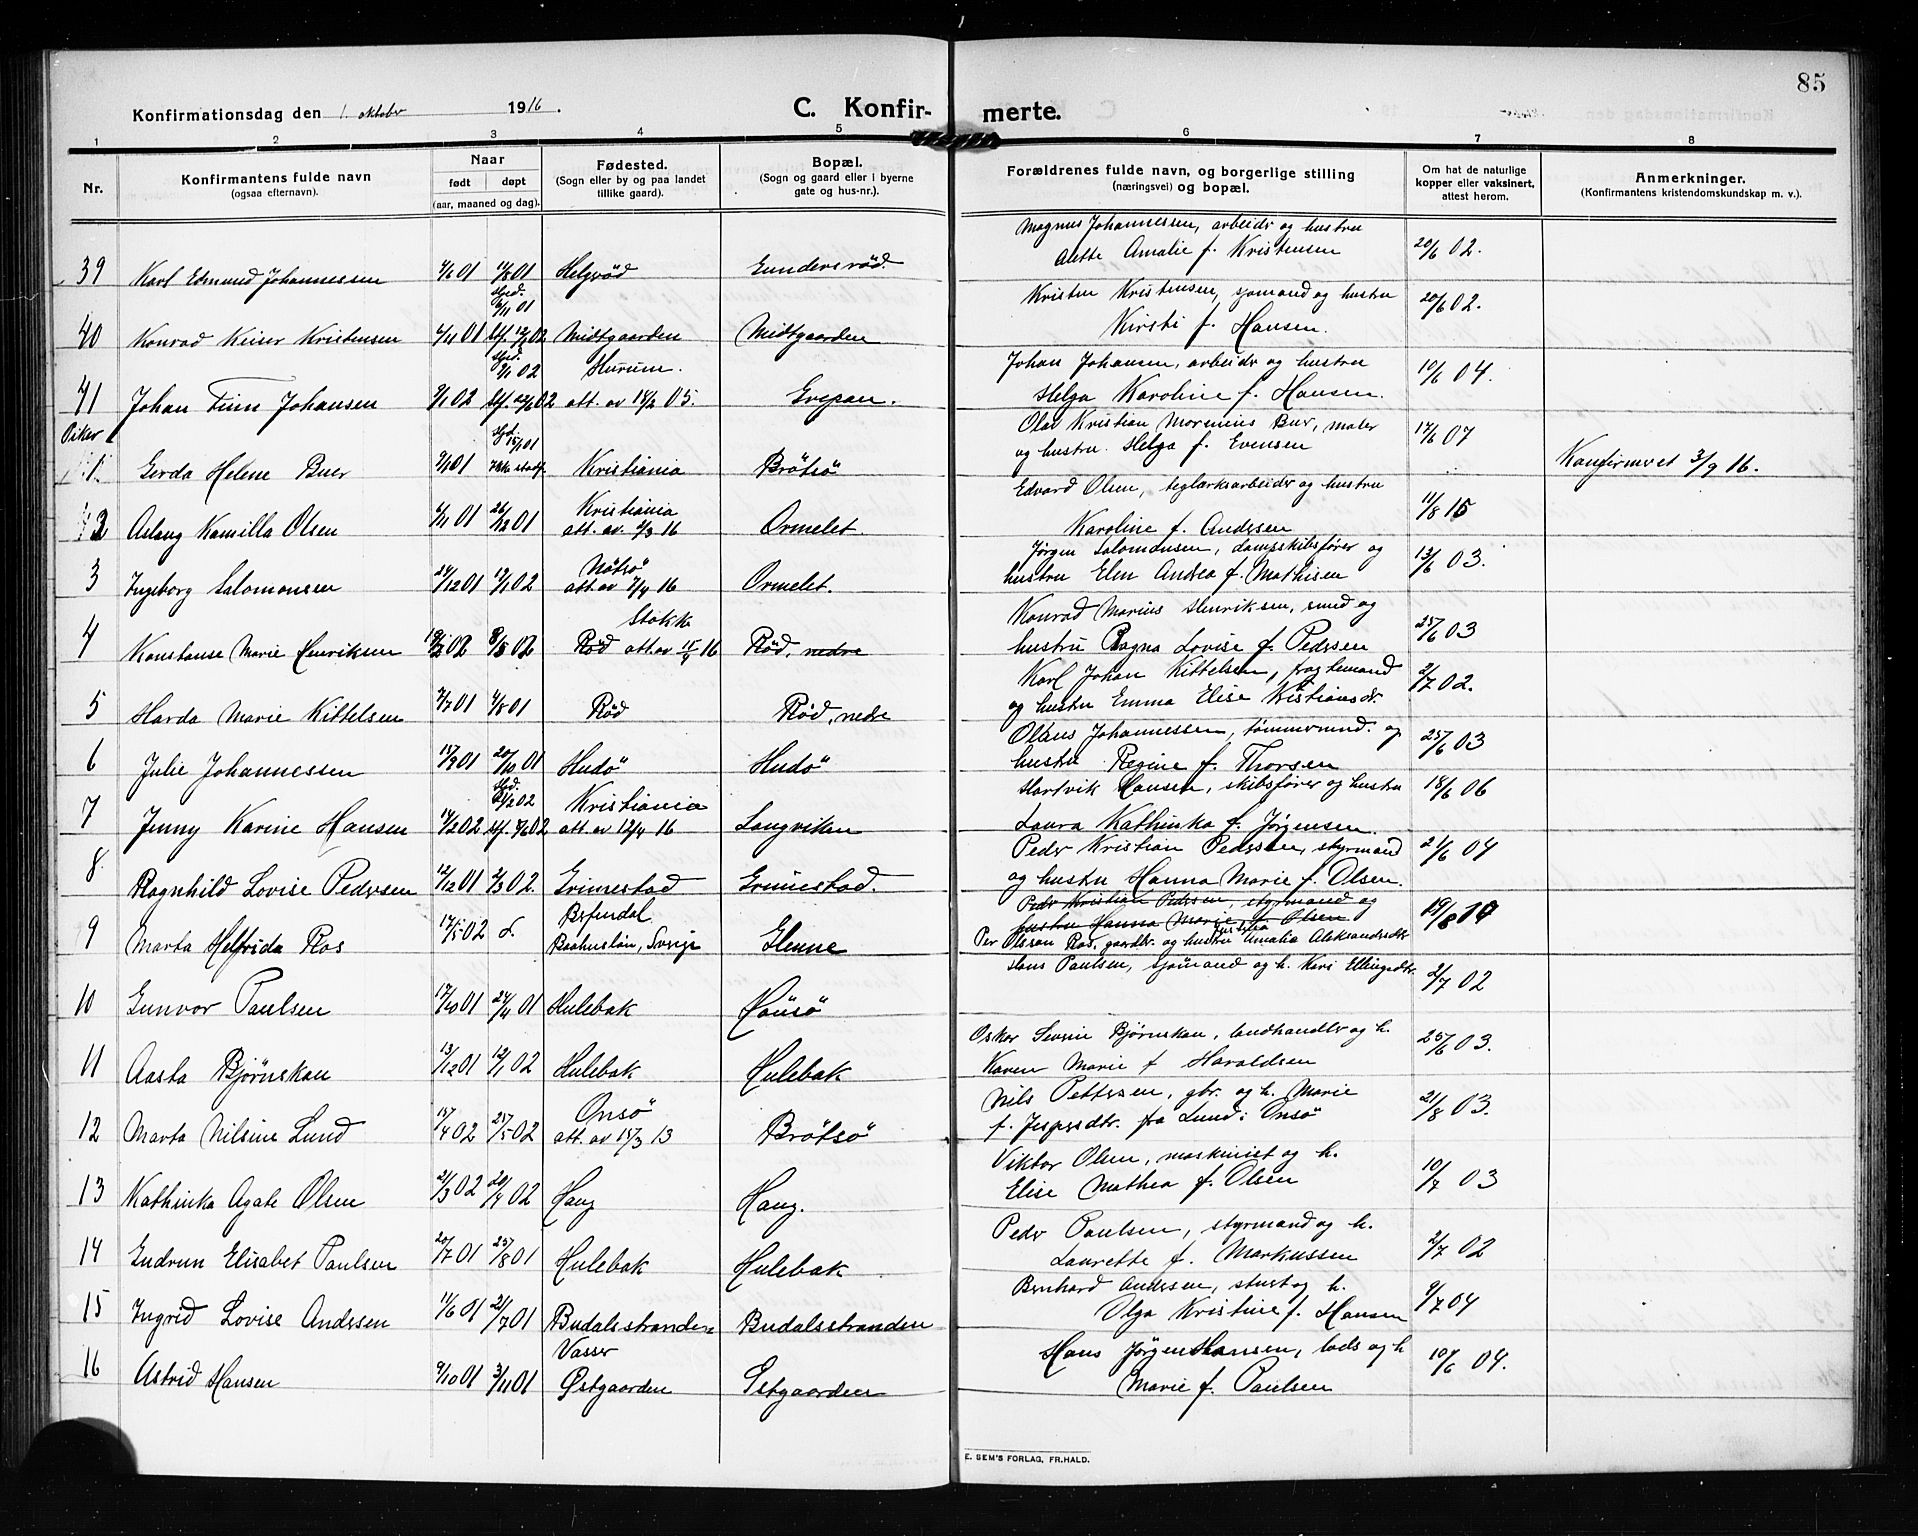 85
Konfirmationsdag den 1. oktober 1916.
C. Konfir-
merte.
1 2 3 4 5 6 7 8
Nr.
Konfirmantens fulde navn
(ogsaa efternavn).
Naar
født døpt
(aar, maaned og dag).
Fødested.
(Sogn eller by og paa landet
tillike gaard).
Bopæl.
(Sogn og gaard eller i byerne
gate og hus-nr.).
Forældrenes fulde navn, og borgerlige stilling
(næringsvei) og bopæl.
Om hat de naturlige
kopper eller vaksinert,
attest herom.
Anmerkninger.
(Konfirmantens kristendomskundskap m. v.).
Magnus Johannessen, arbeider og hustru
39 Karl Edmund Johannessen 4/6 01 11/8 01 Helgerød Gundersrød. Alette Amalie f. Kristensen 20/6 02.
hjd. 6/11 01
Kristen Kristensen, sjømand og hustru
40 Konrad Keiser Kristensen 4/11 01 Midtgaarden Midtgaarden Kirsti f. Hansen. 20/6 02.
hjd. 9/1 02 Hurum.
Johan Johansen, arbeider og hustru
41 Johan Finn Johansen 9/1 02 att. av 18/2 05. Grepan. Helga Karoline f. Hansen. 10/6 04.
Piker
Olav Kristian Mornius Buer, maler
1. Gerda Helene Buer Ikke stadf. Kristiania Brøtsø og hustru Helga f. Evensen 17/6 07 Konfirmeret 3/9 16.
Kristiania
Edvard Olsen, teglverksarbeider og hustru
2 Aslaug Kamilla Olsen 4/11 01 26/12 01 att. av 9/3 16 Ormelet Karoline f. Andersen 11/8 15
Nøtsø
Jørgen Salomonsen, dampskibsfører og
3 Ingeborg Salomonsen 24/12 01 12/1 02 att av 7/4 16 Ormelet. hustru Elen Andrea f. Mathisen 13/6 03.
Stokke
Konrad Marius Henriksen, smed og
4 Konstanse Marie Henriksen 8/5 02 Rød att. av 15/4 16 Rød, nedre hustru Ragna Lovise f. Pedersen 25/6 03
Karl Johan Kittelsen, fragtemand
5 Harda Marie Kittelsen 7/7 01 4/8 01 Rød Rød, nedre og hustru Emma Elise Kristiansdr. 2/7 02.
Olaus Johannessen, tømmermand. og
6 Julie Johannessen 15/9 01 20/10 01 Hudø Hudø hustru Regine f. Thorsen 25/6 03
hjd. 21/2 02 Kristiania
Hartvik Hansen, skibsfører og hustru
7 Jenny Karine Hansen 17/2 02 att av 12/4 16 Langviken Laura Kathinka f. Jørgensen. 18/6 06
Peder Kristian Pedersen, styrmand
8. Ragnhild Lovise Pedersen 12/12 01 2/3 02. Grimestad Grimestad. og hustru Hanna Marie f. Olsen. 21/6 04
Peder Kristian Pedersen, styrmand og
hustru Hanna Marie f. Olsen
9 Marta Helfrida Ros 17/5 02 Bahuslän, Sverige Glenne Per Olsson Ros, gaardbr. og hustru Amalia Aleksandersdtr 19/8 10
Hans Paulsen, sjømand og h. Kari Ellingsdtr. 2/7 02
10 Gunvor Paulsen 17/10 01 24/4 01 Hulebak Hånsø
Oskar Severin Bjørnskau, landhandler og h.
11 Aasta Bjørnskau 13/12 01 12/1 02 Hulebak Hulebak Karen Marie f Haraldsen 25/6 03.
Onsø
Nils Pettersen, gbr. og h. Marie
12 Marta Nilsine Lund 15/4 02 25/5 02 att. av 15/3 13 Brøtsø f. Jespersdtr. fra Lund i Onsø 21/8 03.
Viktor Olsen, maskinist og h.
13 Kathinka Agate Olsen 21/3 02 20/4 02 Haug Haug. Elise Mathea f. Olsen 10/7 03
Peder Paulsen, styrmand og h.
14 Gudrun Elisabet Paulsen 20/7 01 25/8 01 Hulebak Hulebak Laurette f. Markussen 2/7 02
Bernhard Andersen, stuert og h.
15 Ingrid Lovise Andersen 11/6 01 21/7 01 Budalsstranden Budalsstranden Olga Kristine f. Hansen 9/7 04
Vasser
Hans Jørgen Hansen, lods og h
16 Astrid Hansen 9/10 01 3/11 01 Østgaarden Østgaarden Marie f. Paulsen 10/6 04.
E. SEM'S FORLAG, FR.HALD.